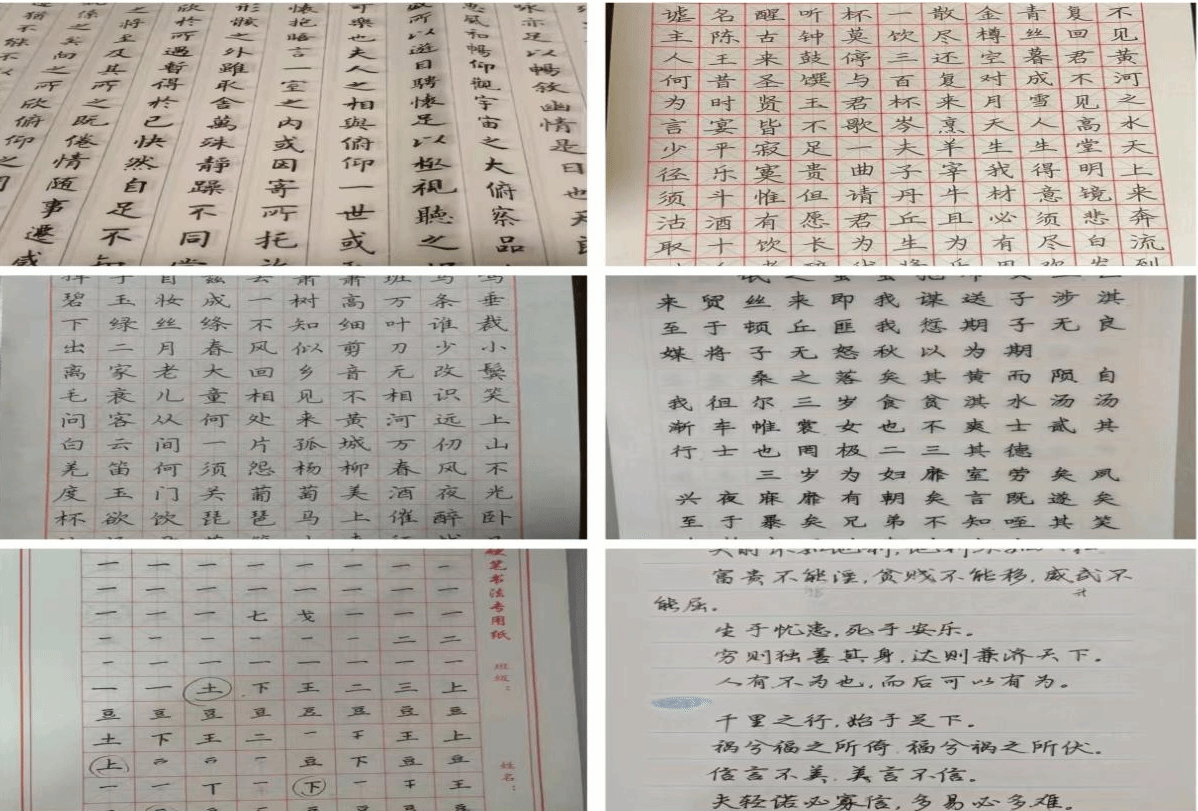 咏亦足以暢敘幽情是日也天
惠風和暢仰觀宇宙之大俯察品
盛所以遊目騁懷足以極視聽之
可樂也夫人之相與俯仰一世或
懷抱晤言一室之內或因寄所托
形骸之外雖取舍萬殊靜躁不同
欣於所遇暫得於己快然自足不
之將至及其所之既倦情隨事遷感
係之矣向之所欣俯仰之
不见黄河之水天上来奔流到
复回君不见高堂明镜悲白
青丝暮成雪人生得意须尽
金樽空对月天生我材必有
散尽还复来烹羊宰牛且为
一饮三百杯岑夫子丹丘生
杯莫停与君歌一曲请君为
听钟鼓馔玉不足贵但愿长
醒古来圣贤皆寂寞惟有饮
名陈王昔时宴平乐斗酒十
墟主人何为言少径须沽取
碧玉妆成一树高万条垂
下绿丝绦不知细叶谁裁
出二月春风似剪刀少小
离家老大回乡音无改鬓
毛衰儿童相见不相识笑
问客从何处来黄河远上
白云间一片孤城万仞山
羌笛何须怨杨柳春风不
度玉门关葡萄美酒夜光
杯欲饮琵琶马上催醉卧
来贸丝来即我谋送子涉淇
至于顿丘匪我愆期子无良
媒将子无怒秋以为期
桑之落矣其黄而陨自
我徂尔三岁食贫淇水汤汤
渐车帷裳女也不爽士贰其
行士也罔极二三其德
三岁为妇靡室劳矣夙
兴夜寐靡有朝矣言既遂矣
至于暴矣兄弟不知咥其笑
硬笔书法专用纸
班级：
姓名：
一一一一一一一一
一一一一一一一一
一一一七戈一一一
一一一一一一二二
一一一一一一一一
一一土下王二三上
豆豆豆豆豆豆豆豆
土下王二一王上
富贵不能淫，贫贱不能移，威武不
能屈。
生于忧患，死于安乐。
穷则独善其身，达则兼济天下。
人有不为也，而后可以有为。
千里之行，始于足下。
祸兮福之所倚，福兮祸之所伏。
信言不美，美言不信。
夫轻诺必寡信，多易必多难。